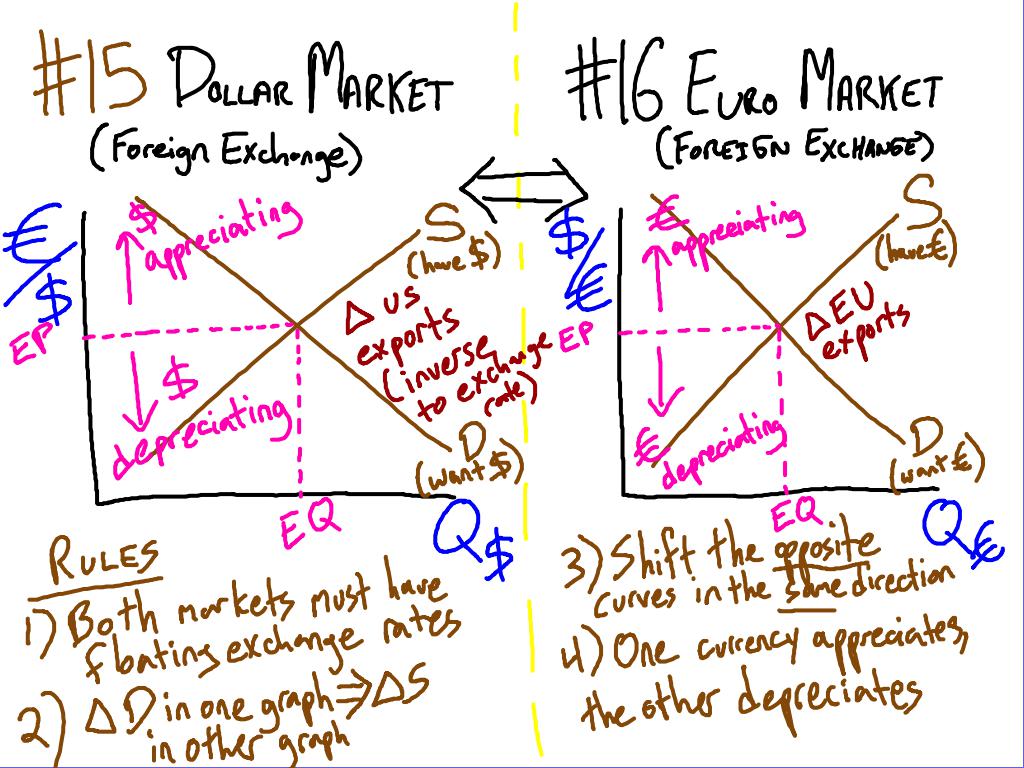 #15 DOLLAR MARKET
(Foreign Exchange)
€/$
$
appreciating
S
(have $)
Δ US
exports
(inverse
to exchange
rate)
EP
$
depreciating
D
(want $)
EQ
Q$
#16 EURO MARKET
(FOREIGN EXCHANGE)
$/€
€
appreciating
S
(have €)
Δ EU
exports
EP
€
depreciating
D
(want €)
EQ
Q€
RULES
1) Both markets must have
floating exchange rates
2) Δ D in one graph ⇒ Δ S
in other graph
3) Shift the opposite
curves in the same direction
4) One currency appreciates,
the other depreciates